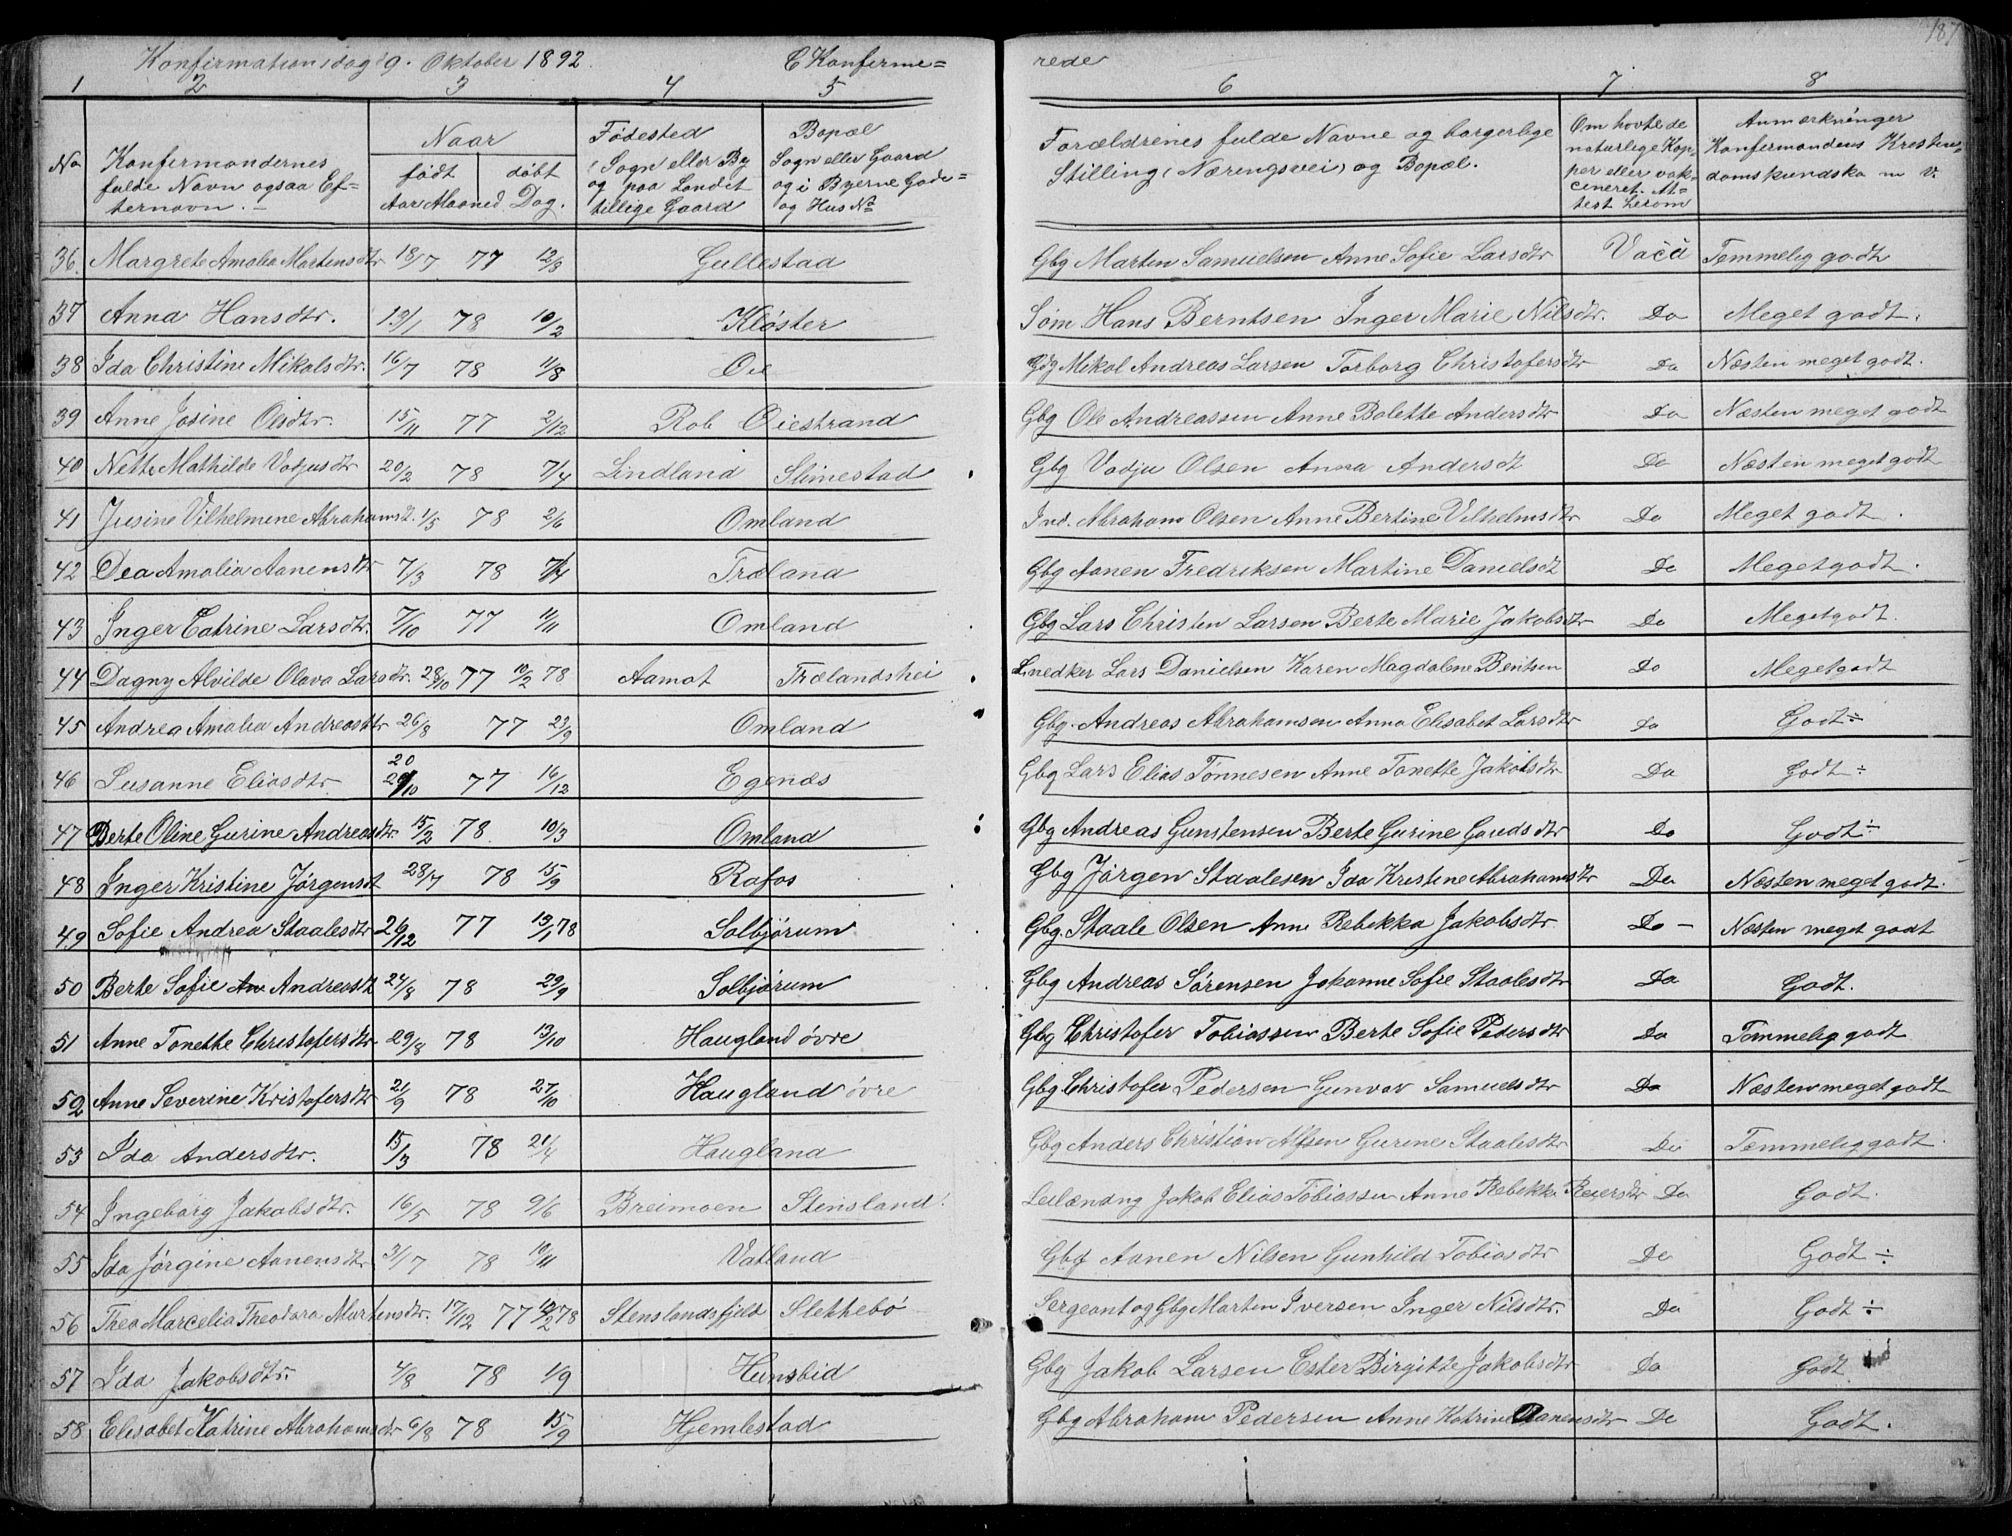 187
Konfirmationsdag 9. Oktober 1892. C Konferme=rede
1 2 3 4 5 6 7 8
No Konfirmandernes fulde Navn ogsaa Efternavn. – Naar født døbt Aar Maaned Dag. Fødested (Sogn eller By og paa Landet tillige Gaard Bopæl Sogn eller Gaard og i Byerne Gade= og Hus No Forældrenes fulde Navne og borgerlige Stilling (Næringsvei) og Bopæl. Om havte de naturlige Kopper eller vakcineret. Attest herom Anmærkninger Konfermandens Kristendomskundska m v.
36. Margrete Amalia Martensdtr 18/7 77 12/8 Gullestad Gbg Marten Samuelsen Anne Sofie Larsdtr Vacc Temmelig godt
37 Anna Hansdtr. 13/1 78 10/2 Kløster Søm Hans Berntsen Inger Marie Nilsdtr. Do Meget godt.
38 Ida Christine Mikalsdtr. 16/7 78 11/8 Øie Gdg Mikal Andreas Larsen Torborg Christofersdtr Do Næsten meget godt.
39 Anne Josine Olsdtr. 15/11 77 2/12 Rob Øiestrand Gbg Ole Andreassen Anne Bolette Andersdtr Do Næsten meget godt
40 Nette Mathilde Vadjusdtr 20/2 78 7/4 Lindland Slimestad Gbg Vadju Olsen Anna Andersdt Do Næsten meget godt
41 Jusine Vilhelmene Abrahamsd. 1/5 78 2/6 Omland Ind. Abraham Olsen Anne Bertine Vilhelmsdtr Do Meget godt.
42 Dea Amalia Aanensdtr 7/3 78 7/4 Træland Gbg Aanen Fredriksen Martine Danielsdt Do Meget godt.
43 Inger Catrine Larsdtr. 7/10 77 11/11 Omland Gbg Lars Christen Larsen Berte Marie Jakobsdtr Do Meget godt.
44 Dagny Alvilde Olava Larsdtr. 28/10 77 10/2 78 Aamot Trælandshei Snedker Lars Danielsen Karen Magdalene Bentsen Do Meget godt
45 Andrea Amalia Andreasdtr 26/8 77 23/9 Omland Gbg. Andreas Abrahamsen Anna Elisabet Larsdtr Do Godt ÷
46 Susanne Eliasdtr. 20 /10 77 16/12 Egenæs Gbg Lars Elias Tønnesen Anne Tonette Jakobsdtr Do Godt ÷
47 Berte Oline Gurine Andreasdtr. 15/2 78 10/3 Omland Gbg Andreas Gunstensen Berte Gurine Gaudsdtr Do Godt ÷
48 Inger Kristine Jørgensdt 28/7 78 15/9 Rafos Gbg Jørgen Staalesen Ida Kristine Abrahamsdtr Do Næsten meget godt.
49 Sofie Andrea Staalesdtr 26/12 77 13/1 78 Solbjørum Gbg. Staale Olsen Ann Rebekka Jakobsdtr Do – Næsten meget godt
50 Berte Sofie An Andreasdt 24/8 78 29/9 Solbjørum Gbg Andreas Sørensen Johanne Sofie Staalesdtr Do Godt.
51 Anne Tonette Christofersdtr 29/8 78 13/10 Haugland øvre Gbg Christofer Tobiassen Berte Sofie Pedersdtr Do Temmelig godt
52 Anne Severine Kristofersdtr 21/9 78 27/10 Haugland øvre Gbg Christofer Pedersen Gunvar Samuelsdtr Do Næsten meget godt
53 Ida Andersdtr. 15/3 78 21/4 Haugland Gbg Anders Christian Alfsen Gurine Staalesdtr Do Temmelig godt.
54 Ingeborg Jakobsdtr. 16/5 78 9/6 Breimoen Stensland. Leilændng Jakob Elias Tobiassen Anne Rebekka Reiersdtr Do Godt.
55 Ida Jørgine Aanensdtr 31/7 78 10/11 Vatland Gbg Aanen Nilsen Gunhild Tobiasdtr Do Godt ÷
56 Thea Marcelia Theodora Martensdtr. 17/12 77 12/2 78 Stenslandsfjeld Slettebø Sergeant og Gbg Marten Iversen Inger Nilsdtr. Do Godt ÷
57 Ida Jakobsdtr. 4/8 78 1/9 Hunsbid Gbg Jakob Larsen Ester Birgitte Jakobsdtr Do Godt
58 Elisabet Katrine Abrahamsdr 6/8 78 15/9 Hjemlestad Gbg Abraham Pedersen Anne Katrine Aanensdtr Do Godt.